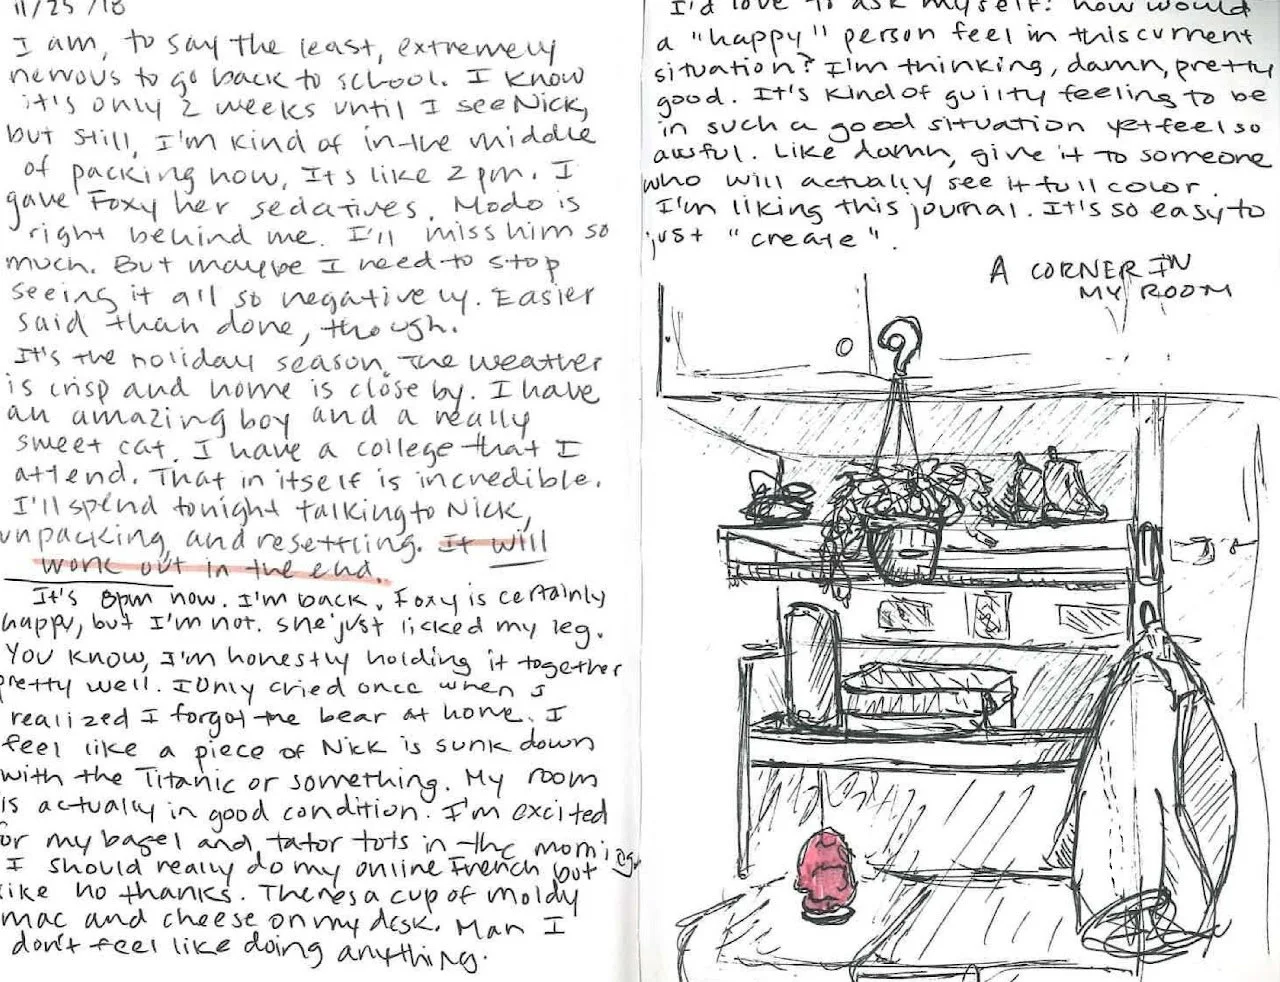 11/25/18
I am, to say the least, extremely
nervous to go back to school. I know
it's only 2 weeks until I see Nick,
but still, I'm kind of in the middle
of packing now. Its like 2 pm. I
gave Foxy her sedatives. Modo is
right behind me. I'll miss him so
much. But maybe I need to stop
seeing it all so negatively. Easier
said than done, though.
It's the holiday season. The weather
is crisp and home is close by. I have
an amazing boy and a really
sweet cat. I have a college that I
attend. That in itself is incredible.
I'll spend tonight talking to Nick,
unpacking, and resettling. It will
work out in the end.
It's 8pm now. I'm back. Foxy is certainly
happy, but I'm not. She just licked my leg.
You know, I'm honestly holding it together
pretty well. I only cried once when I
realized I forgot the bear at home. I
feel like a piece of Nick is sunk down
with the Titanic or something. My room
is actually in good condition. I'm excited
for my bagel and tator tots in the morning.
I should really do my online French but
like no thanks. Theres a cup of moldy
mac and cheese on my desk. Man I
don't feel like doing anything.
I'd love to ask myself: how would
a "happy" person feel in this current
situation? I'm thinking, damn, pretty
good. It's kind of guilty feeling to be
in such a good situation yet feel so
awful. Like damn, give it to someone
who will actually see it full color.
I'm liking this journal. It's so easy to
just "create".
A CORNER IN
MY ROOM